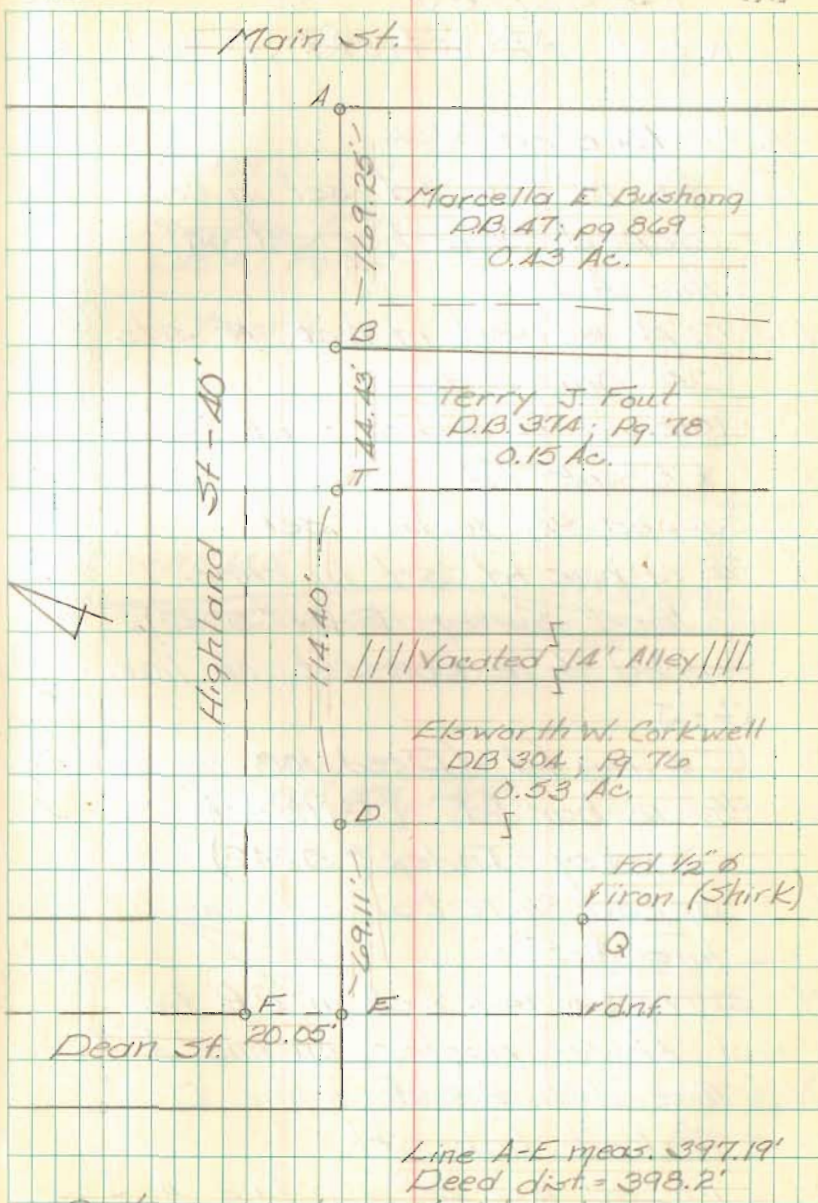 Main St.
A
169.25'
Marcella E Bushong
D.B. 47; pg 869
0.43 Ac.
B
44.43'
Terry J. Fout
D.B. 374; Pg. 78
0.15 Ac.
T
Highland St - 40'
114.40'
Vacated 14' Alley
Elsworth W. Corkwell
DB 304; Pg 76
0.53 Ac.
D
Fd. 1/2" ø
iron (Shirk)
69.11'
Q
F
E
dnf
20.05'
Dean St.
Line A-E meas. 397.19'
Deed dist. = 398.2'